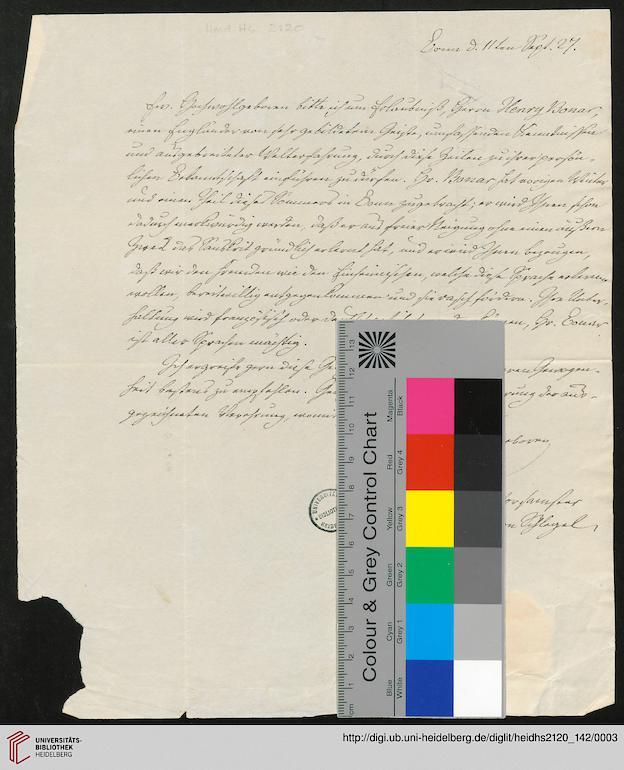 Bonn d. 11ten Sept. 27.
Ew. Hochwohlgeboren bitte ich um Erlaubniß, Herrn Henry Bonar
einen Engländer von sehr gebildetem Geiste, umfassenden Kenntnissen
und ausgebreiteter Welterfahrung, durch diese Zeilen zu ihrer persön-
lichen Bekanntschaft einführen zu dürfen. Hr. Bonar hat vorigen Winter
und einen Theil dieses Sommers in Bonn zugebracht; er wird Ihnen schon
dadurch merkwürdig werden, daß er aus freier Neigung ohne einen äußern
Zweck das Sanskrit gründlich erlernt hat, und er wird Ihnen bezeugen,
daß wir den Fremden wie den Einheimischen, welche diese Sprache erlernen
wollen, bereitwillig entgegen kommen und sie rasch fördern. Ihre Unter-
haltung wird französisch oder können, Hr. Bonar
ist aller Sprachen mächtig.
Ich ergreife gern diese Gewogen-
heit bestens zu empfehlen. der aus-
gezeichneten Verehrung, womit
gehorsamster
Schlegel
UNIVERSITÄTS-
BIBLIOTHEK
HEIDELBERG
Colour & Grey Control Chart
Blue Cyan Green Yellow Red Magenta
White Grey 1 Grey 2 Grey 3 Grey 4 Black
cm 1 2 3 4 5 6 7 8 9 10 11 12 13
http://digi.ub.uni-heidelberg.de/diglit/heidhs2120_142/0003